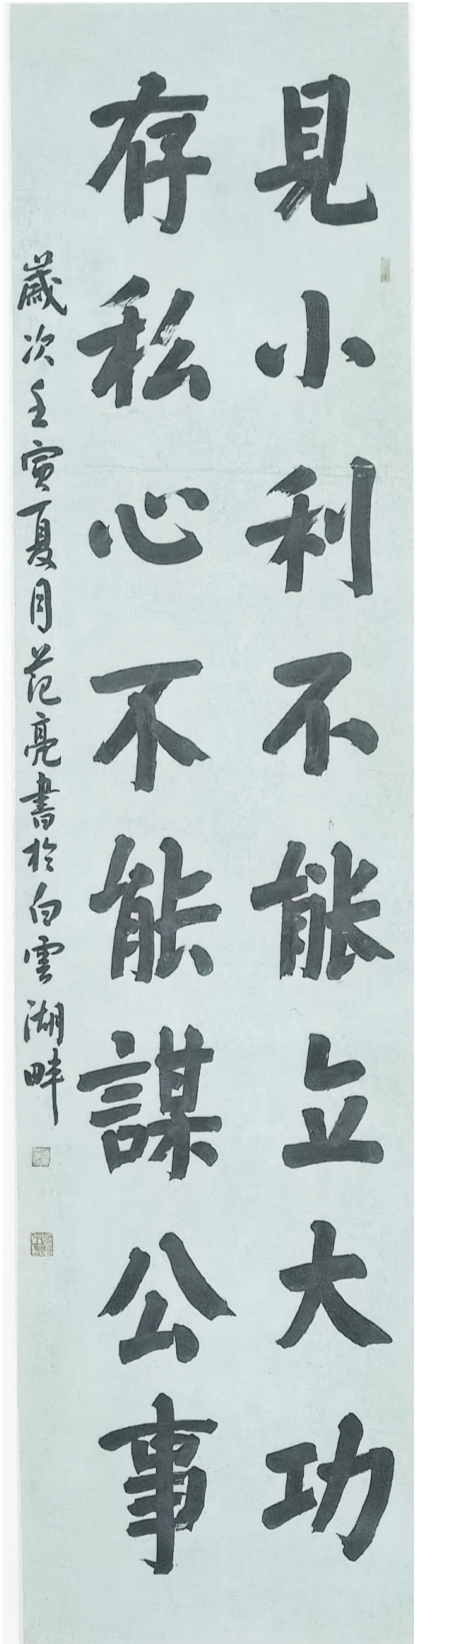 見小利不能立大功
存私心不能謀公事
歲次壬寅夏月范亮書於白雲湖畔